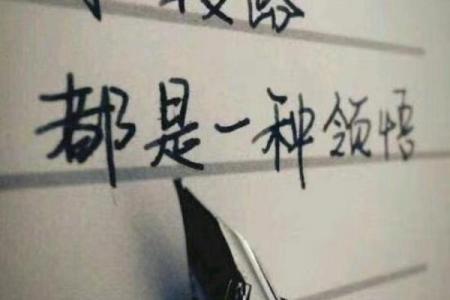 都是一种领悟